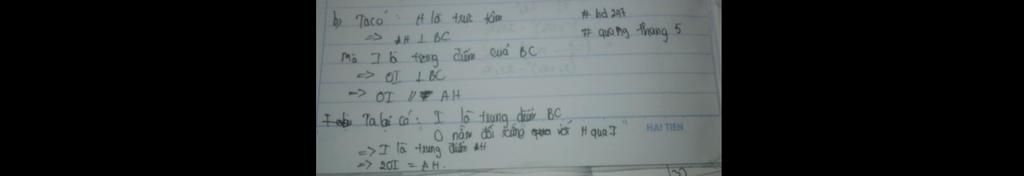 b) Ta có : H là trực tâm # hd 247
=> AH ⊥ BC # quảng tháng 5
Mà I là trung điểm của BC
=> OI ⊥ BC
=> OI // AH
Ta lại có : I là trung điểm BC
O nằm đối xứng với H qua I
HAI TIEN
=> I là trung điểm AH
=> 2OI = AH.